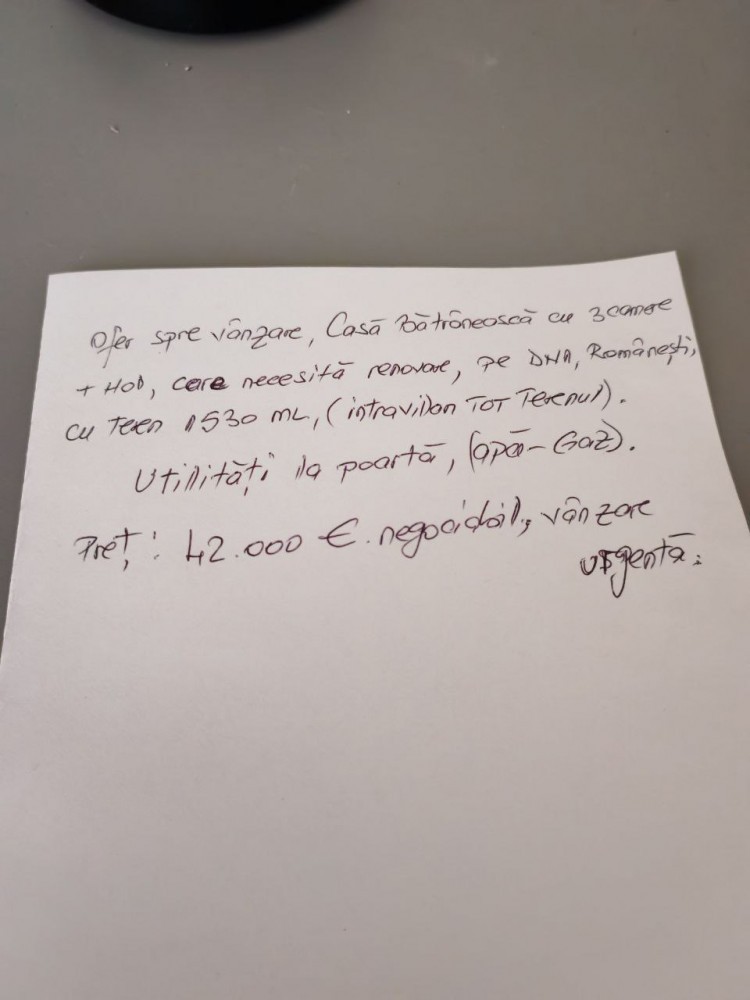 Ofer spre vânzare, Casă Bătrânească cu 3 camere
+ Hol, care necesită renovare, pe DN1A, Românești,
cu teren 1530 mL, (intravilan TOT Terenul).
Utilități la poartă, (apă - Gaz).
Preț: 42.000 €. negociabil, vânzare
urgentă.